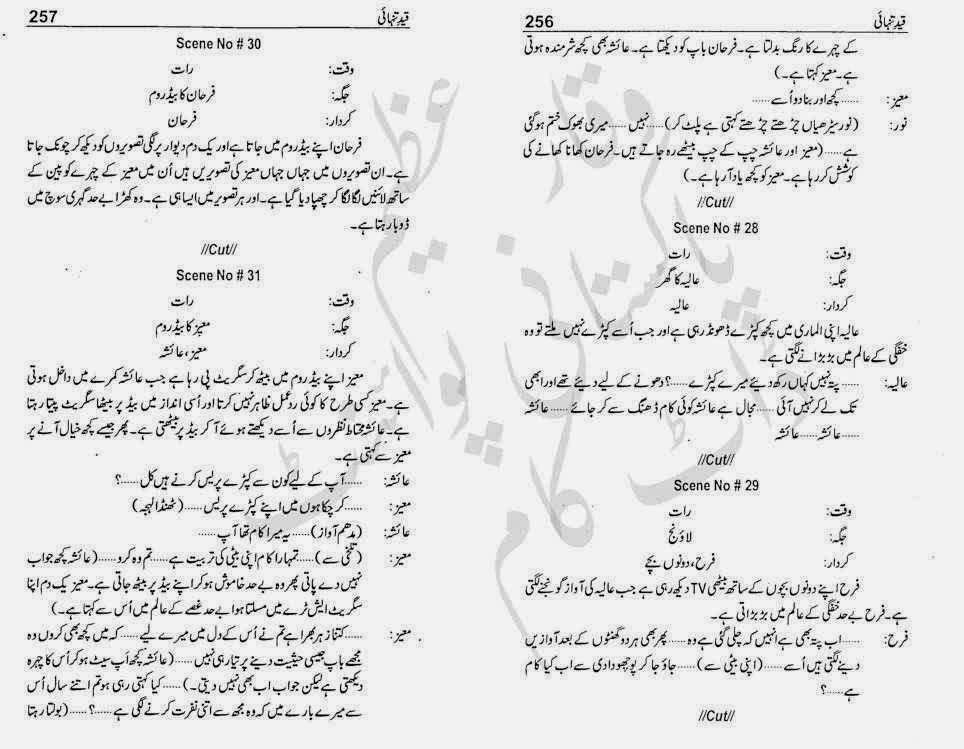 256 قیدِ تنہائی
کے چہرے کا رنگ بدلتا ہے۔ فرحان باپ کو دیکھتا ہے۔ عائشہ بھی کچھ شرمندہ ہوتی
ہے۔ معیز کہتا ہے۔)
معیز: ......کچھ اور بنا دو اُسے......
نور: (نور سیڑھیاں چڑھتے چڑھتے کہتی ہے پلٹ کر)......نہیں......میری بھوک ختم ہو گئی
ہے......(معیز اور عائشہ چپ کے چپ بیٹھے رہ جاتے ہیں۔ فرحان کھانا کھانے کی
کوشش کر رہا ہے۔ معیز کو کچھ یاد آ رہا ہے۔)
//Cut//
Scene No # 28
وقت: رات
جگہ: عالیہ کا گھر
کردار: عالیہ
عالیہ اپنی الماری میں کچھ کپڑے ڈھونڈ رہی ہے اور جب اُسے کپڑے نہیں ملتے تو وہ
خفگی کے عالم میں بڑبڑانے لگتی ہے۔
عالیہ: ......پتہ نہیں کہاں رکھ دیئے میرے کپڑے......؟ دھونے کے لیے دیئے تھے اور ابھی
تک لے کر نہیں آئی......مجال ہے عائشہ کوئی کام ڈھنگ سے کر جائے......عائشہ
......عائشہ......عائشہ
//Cut//
Scene No # 29
وقت: رات
جگہ: لاؤنج
کردار: فرح، دونوں بچے
فرح اپنے دونوں بچوں کے ساتھ بیٹھی TV دیکھ رہی ہے جب عالیہ کی آواز گونجنے لگتی
ہے۔ فرح بے حد خفگی کے عالم میں بڑبڑاتی ہے۔
فرح: ......اب پتہ بھی ہے انہیں کہ چلی گئی ہے وہ......پھر بھی ہر دو گھنٹوں کے بعد آوازیں
دینے لگتی ہیں اُسے......(اپنی بیٹی سے)......جاؤ جا کر پوچھو دادی سے اب کیا کام
ہے......؟
//Cut//
257 قیدِ تنہائی
Scene No # 30
وقت: رات
جگہ: فرحان کا بیڈ روم
کردار: فرحان
فرحان اپنے بیڈ روم میں جاتا ہے اور یک دم دیوار پر لگی تصویروں کو دیکھ کر چونک جاتا
ہے۔ ان تصویروں میں جہاں جہاں معیز کی تصویریں ہیں اُن میں معیز کے چہرے کو پین کے
ساتھ لائنیں لگا لگا کر چھپا دیا گیا ہے۔ اور ہر تصویر میں ایسا ہی ہے۔ وہ کھڑا بے حد گہری سوچ میں
ڈوبا رہتا ہے۔
//Cut//
Scene No # 31
وقت: رات
جگہ: معیز کا بیڈ روم
کردار: معیز، عائشہ
معیز اپنے بیڈ روم میں بیٹھ کر سگریٹ پی رہا ہے جب عائشہ کمرے میں داخل ہوتی
ہے۔ معیز کسی طرح کا کوئی ردِعمل ظاہر نہیں کرتا اور اُسی انداز میں بیڈ پر بیٹھا سگریٹ پیتا رہتا
ہے۔ عائشہ محتاط نظروں سے اُسے دیکھتے ہوئے آ کر بیڈ پر بیٹھتی ہے۔ پھر جیسے کچھ خیال آنے پر
معیز سے کہتی ہے۔
عائشہ: ......آپ کے لیے کون سے کپڑے پریس کرنے ہیں کل......؟
معیز: ......کر چکا ہوں میں اپنے کپڑے پریس......(ٹھنڈا لہجہ)
عائشہ: (مدھم آواز)......یہ میرا کام تھا آپ......
معیز: (تلخی سے)......تمہارا کام اپنی بیٹی کی تربیت ہے......تم وہ کرو......(عائشہ کچھ جواب
نہیں دے پاتی پھر وہ بے حد خاموش ہو کر اپنے بیڈ پر بیٹھ جاتی ہے۔ معیز یک دم اپنا
سگریٹ ایش ٹرے میں مسلتا ہوا بے حد غصے کے عالم میں اُس سے کہتا ہے۔)
معیز: ......کتنا زہر بھرا ہے تم نے اُس کے دل میں میرے لیے......کہ میں کچھ بھی کروں وہ
مجھے باپ جیسی حیثیت دینے پر تیار ہی نہیں......(عائشہ کچھ اَپ سیٹ ہو کر اُس کا چہرہ
دیکھتی ہے لیکن جواب اب بھی نہیں دیتی۔)......کیا کہتی رہی ہو تم اتنے سال اُس
سے میرے بارے میں کہ وہ مجھ سے اتنی نفرت کرنے لگی ہے......؟......(بولتا رہتا
وقار عظیم
پاکستانی پوائنٹ
ڈاٹ کام